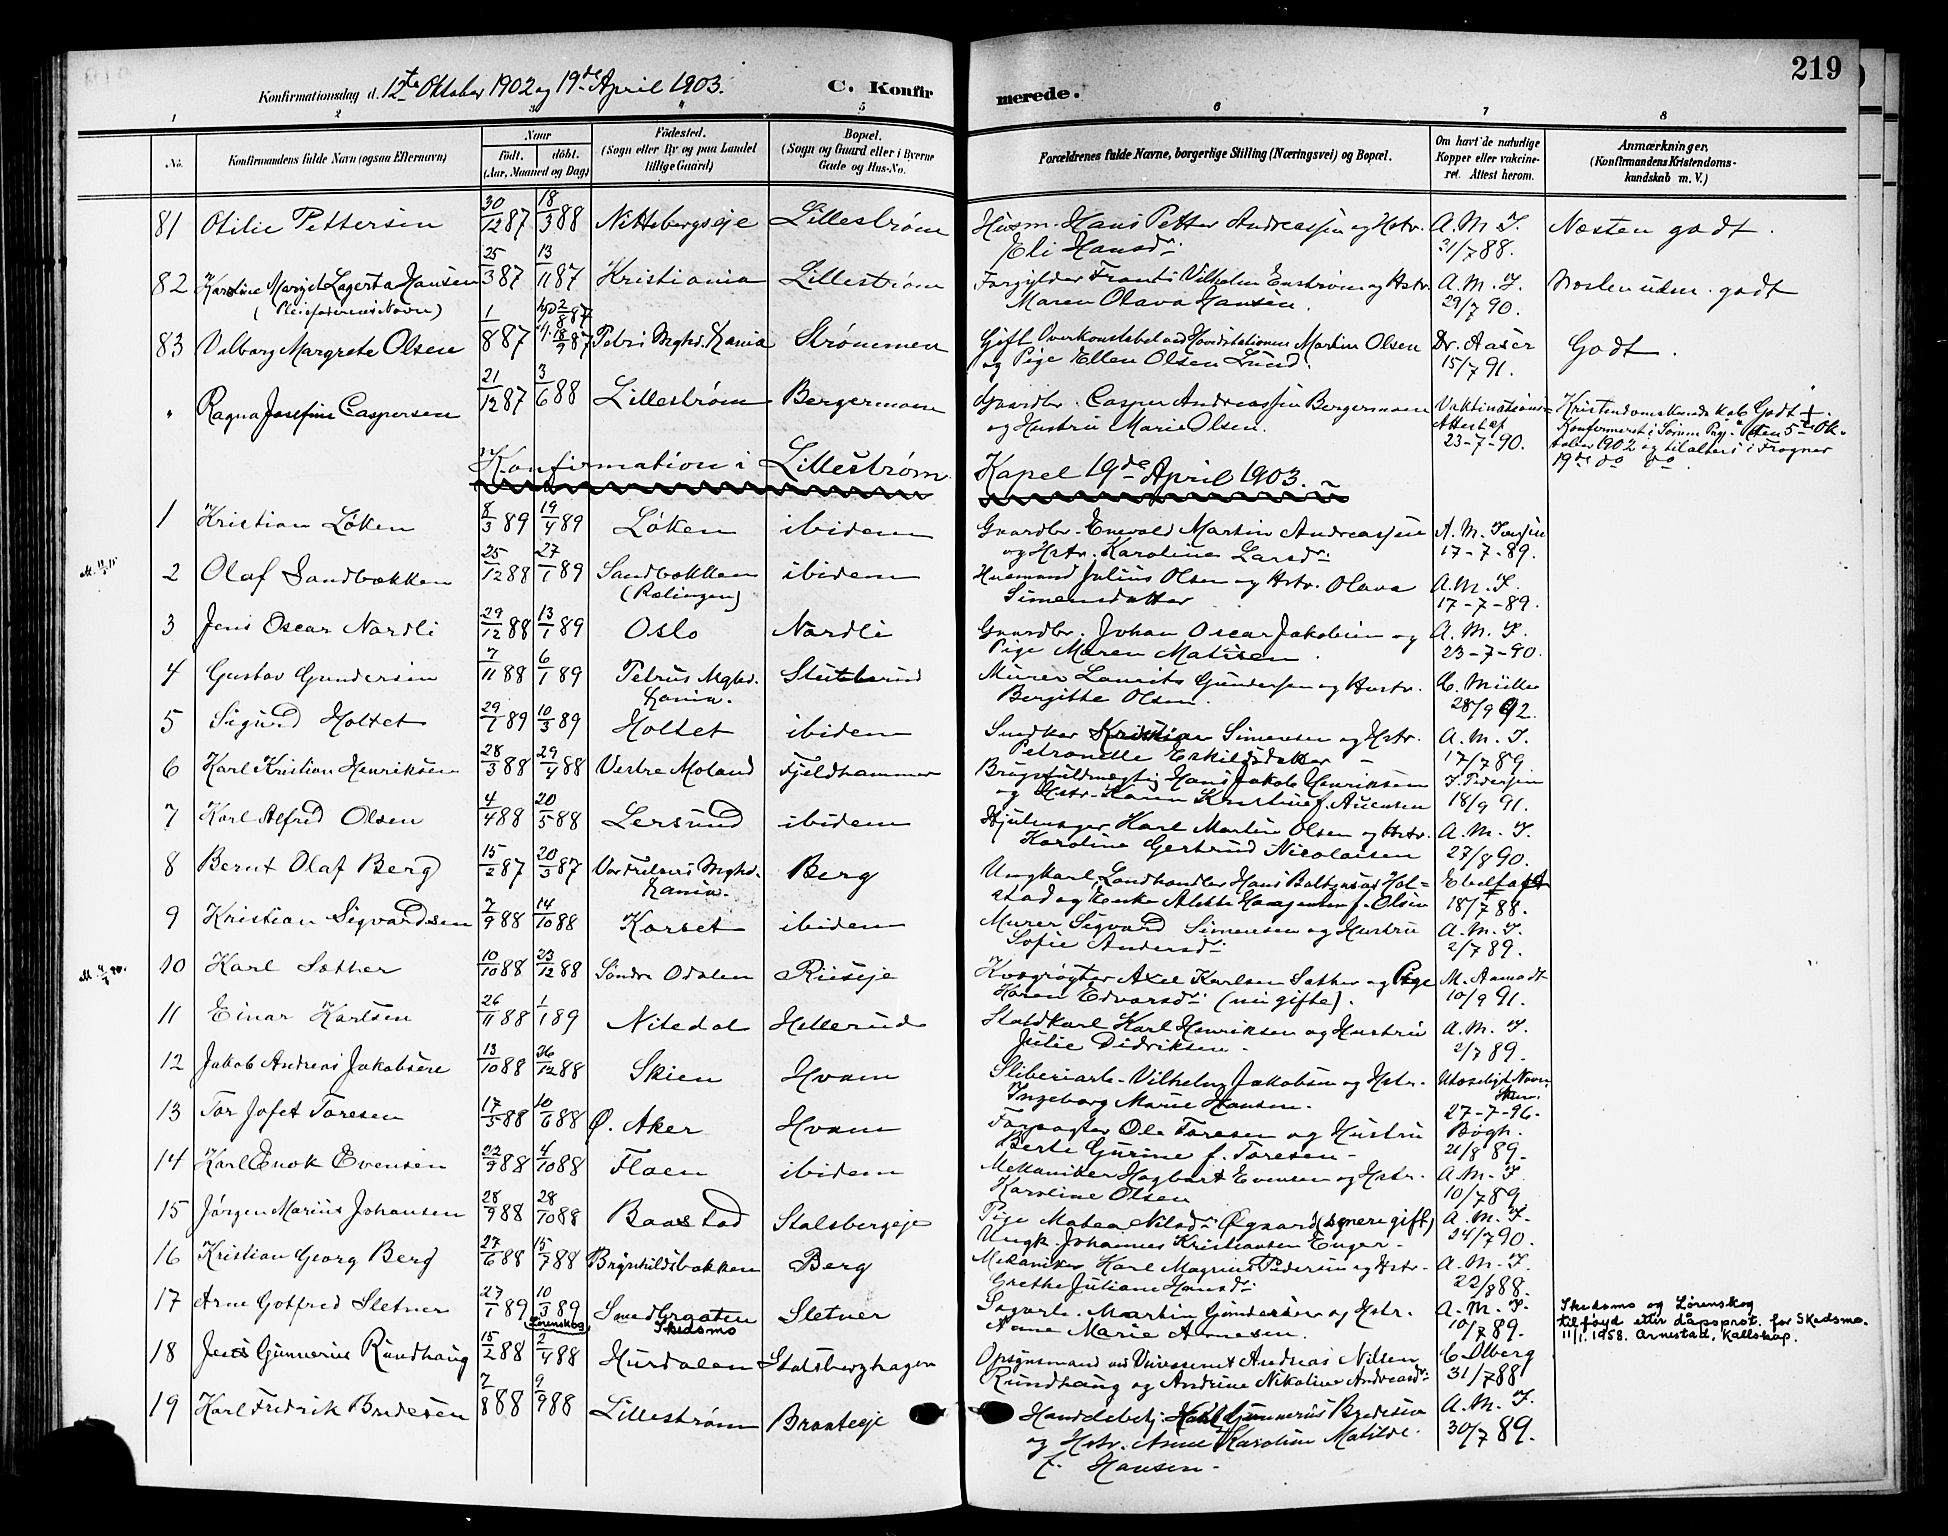 219
Konfirmationsdag d. 12te Oktober 1902 og 19de April 1903.
C. Konfir merede.
1 2 3 4 5 6 7 8
No.
Konfirmandens fulde Navn (ogsaa Efternavn)
Naar
født. døbt.
(Aar, Maaned og Dag)
Fødested.
(Sogn eller By og paa Landet
tillige Gaard)
Bopæl.
(Sogn og Gaard eller i Byerne
Gade og Hus-No.
Forældrenes fulde Navne, borgerlige Stilling (Næringsvei) og Bopæl.
Om havt de naturlige
Kopper eller vakcine-
ret. Attest herom.
Anmærkninger.
(Konfirmandens Kristendoms-
kundskab m. V.)
81 Otilie Pettersen 30/12 87 18/3 88 Nittebergseje Lillestrøm Husm. Hans Petter Andreassen og Hstr. A. M. J. Næsten godt.
Eli Hansdr. 31/7 88.
82 Karoline Margit Lagerta Hansen 25/3 87 13/11 87 Kristiania Lillestrøm Forgylder Frants Vilhelm Enstrøm og Hstr. A. M. J. Næsten udm. godt
(Pleiefaderens Navn) Maren Olava Hansen. 29/7 90.
83 Valborg Margrete Olsen 1/8 87 hjd 2/8 87 Petri Mghd. Kania Strømmen Gift Overkonstabel ved Hovedstationen Martin Olsen Dr. Aaser Godt.
18/9 87 og Pige Ellen Olsen Lund. 15/7 91.
" Ragna Josefine Caspersen 21/12 87 3/6 88 Lillestrøm Bergermoen Gaardbr. Casper Andreassen Bergermoen Vaktinations- Kristendomskundskab Godt +.
og Hustru Marie Olsen. Attest af Konfirmeret i Sørum Prgj. den 5te Ok-
23-7-90. tober 1902 og til alters i Frogner
19de do do.
Konfirmation i Lillestrøm Kapel 19de April 1903.
1 Kristian Løken 8/3 89 19/4 89 Løken ibidem Gaardbr. Enevold Martin Andreassen A. M. Jensen
og Hstr. Karoline Larsdr. 17-7-89.
2 Olaf Sandbækken 25/12 88 27/1 89 Sandbækken ibidem Husmand Julius Olsen og Hstr. Olava A. M. J.
(Rælingen) Simensdatter 17-7-89.
3 Jens Oscar Nordli 29/12 88 13/1 89 Oslo Nordli Gaardbr. Johan Oscar Jakobsen og A. M. J.
Pige Maren Matisen. 23-7-90.
4 Gustav Gundersen 7/11 88 6/1 89 Petrus Mghd. Stutterud Murer Laurits Gundersen og Hustr. C. Müller
Kania. Bergitte Olsen. 28/9 92.
5 Sigurd Holtet 29/1 89 10/3 89 Holtet ibidem Snedker Kristian Simensen og Hstr. A. M. J.
Petronelle Eskildsdatter - 17/7 89.
6 Karl Kristian Henriksen 28/3 88 29/4 88 Vestre Moland Fjeldhammer Brugsfuldmægtig Hans Jakob Henriksen J. Pedersen
og Hstr. Karen Kristine f. Auensen 18/9 91.
7 Karl Alfred Olsen 4/4 88 20/5 88 Lersund ibidem Hjulmager Karl Martin Olsen og Hstr. A. M. J.
Karoline Gertrud Nicolaisen 27/8 90.
8 Bernt Olaf Berg 15/2 87 20/3 87 Vor Frelsers Mghd. Berg Ungkarl, Landhandler Hans Baltzersen Hol-
Kania. stad og Enke Alette Haagensen f. Olsen 18/7 88.
9 Kristian Sigvardsen 7/9 88 14/10 88 Korset ibidem Murer Sigvard Simensen og Hustru A. M. J.
Sofie Andersdr. 2/7 89.
10 Karl Sæther 10/10 88 23/12 88 Søndre Odalen Riiseje Kvægrøgter Axel Karlsen Sæther og Pige M. Aamodt
Karen Edvardsdr. (nu gifte). 10/9 91.
11 Einar Karlsen 26/11 88 1/1 89 Nitedal Hellerud Staldkarl Karl Henriksen og Hustru A. M. J.
Julie Didriksen - 2/7 89.
12 Jakob Andreas Jakobsen 13/10 88 26/12 88 Skien Hvam Sliberiarb. Vilhelm Jakobsen og Hstr. Utydeligt Navn
Ingeborg Marie Hansen. Skien
13 Tor Jofet Toresen 17/5 88 10/6 88 Ø. Aker Hvam Forpagter Ole Toresen og Hustru 27-7-96.
Berte Gurine f. Toresen - Bøgh.
14 Karl Enok Evensen 22/9 88 4/10 88 Floen ibidem Mekaniker Hagbart Evensen og Hstr. 21/8 89. A. M. J.
Karoline Olsen 10/7 89
15 Jørgen Marius Johansen 28/9 88 28/10 88 Baastad Stalsbergeje Pige Matea Nilsdr. Øgaard (senere gift) A. M. J.
Ungk. Johannes Kristiansen Enger - 24/7 90.
16 Kristian Georg Berg 27/6 88 15/7 88 Brynhildsbakken Berg Mekaniker Karl Magnus Pedersen og Hstr. A. M. J.
Grethe Juliane Hansdr. 22/8 88.
17 Arne Gotfred Sletner 27/1 89 10/3 89 Smedgraaten Sletner Sagarb. Martin Gundersen og Hstr. A. M. J. Skedsmo og Lørenskog
Lørenskog Skedsmo Anne Marie Arnesen. 10/7 89. tilføyd etter dåpsprot. for Skedsmo.
11/1. 1958. Arnestad, Kallskap.
18 Jens Gunnerius Rundhaug 15/2 88 2/4 88 Hurdalen Stalsberghagen Opsynsmand ved Veivæsenet Andreas Nilsen C. Olberg
Rundhaug og Andrine Nikoline Andreasdr. 31/7 88
19 Karl Fredrik Bredesen 7/8 88 9/9 88 Lillestrøm Braateeje Handelsbetj. Karl Gunnerius Bredesen A. M. J.
og Hstr. Anne Karoline Matilde 30/7 89.
f. Hansen.